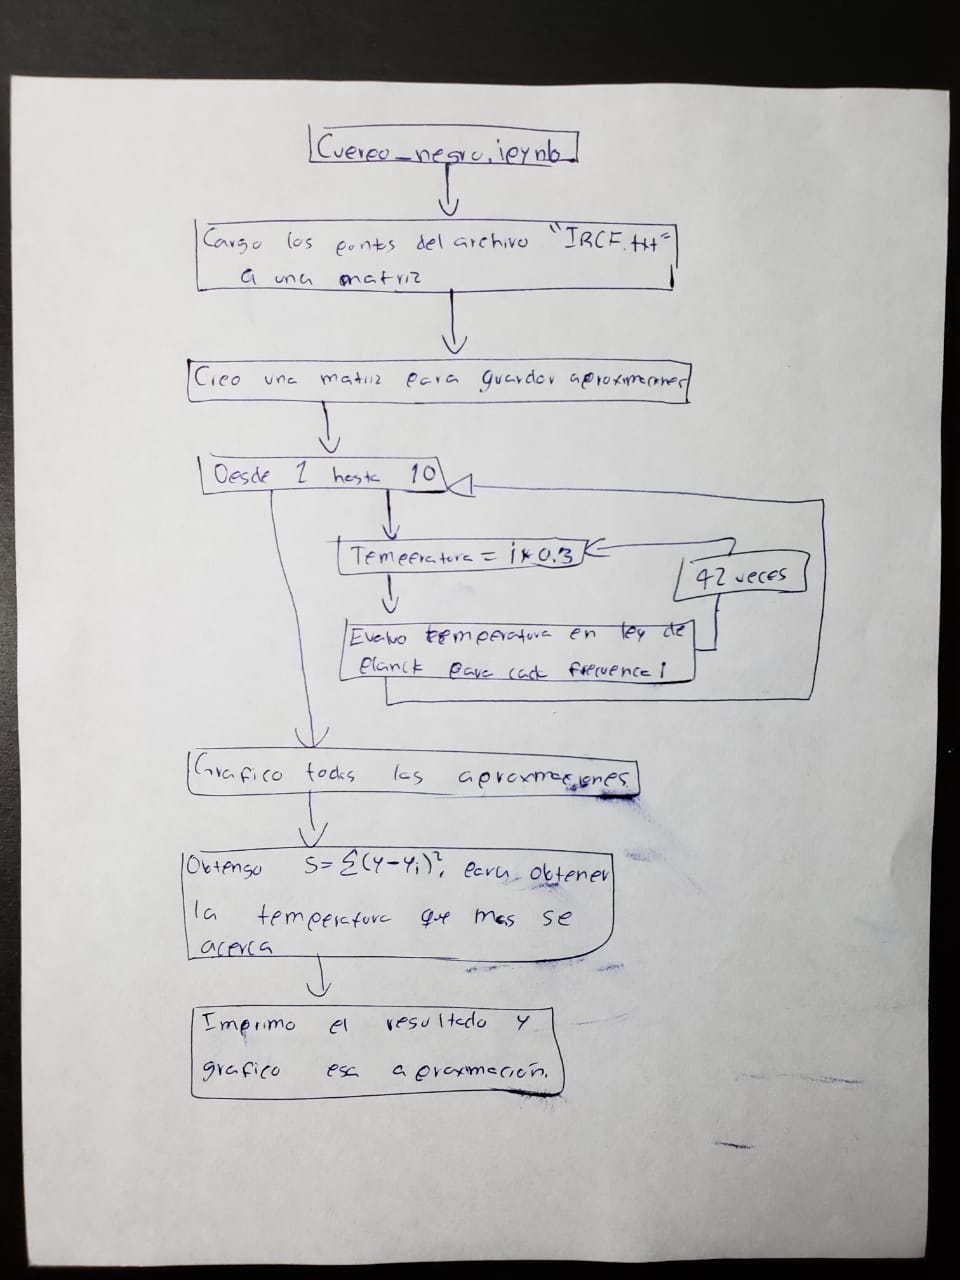 Cuerpo_negro.ipynb
Cargo los puntos del archivo "IRCF.txt"
a una matriz
Creo una matriz para guardar aproximaciones
Desde 1 hasta 10
Temperatura = i*0.3
42 veces
Evaluo temperatura en ley de
Planck para cada frecuencai
Grafico todas las aproximaciones
Obtengo S=Σ(y-yi)², para obtener
la temperatura que mas se
acerca
Imprimo el resultado y
grafico esa aproximación.